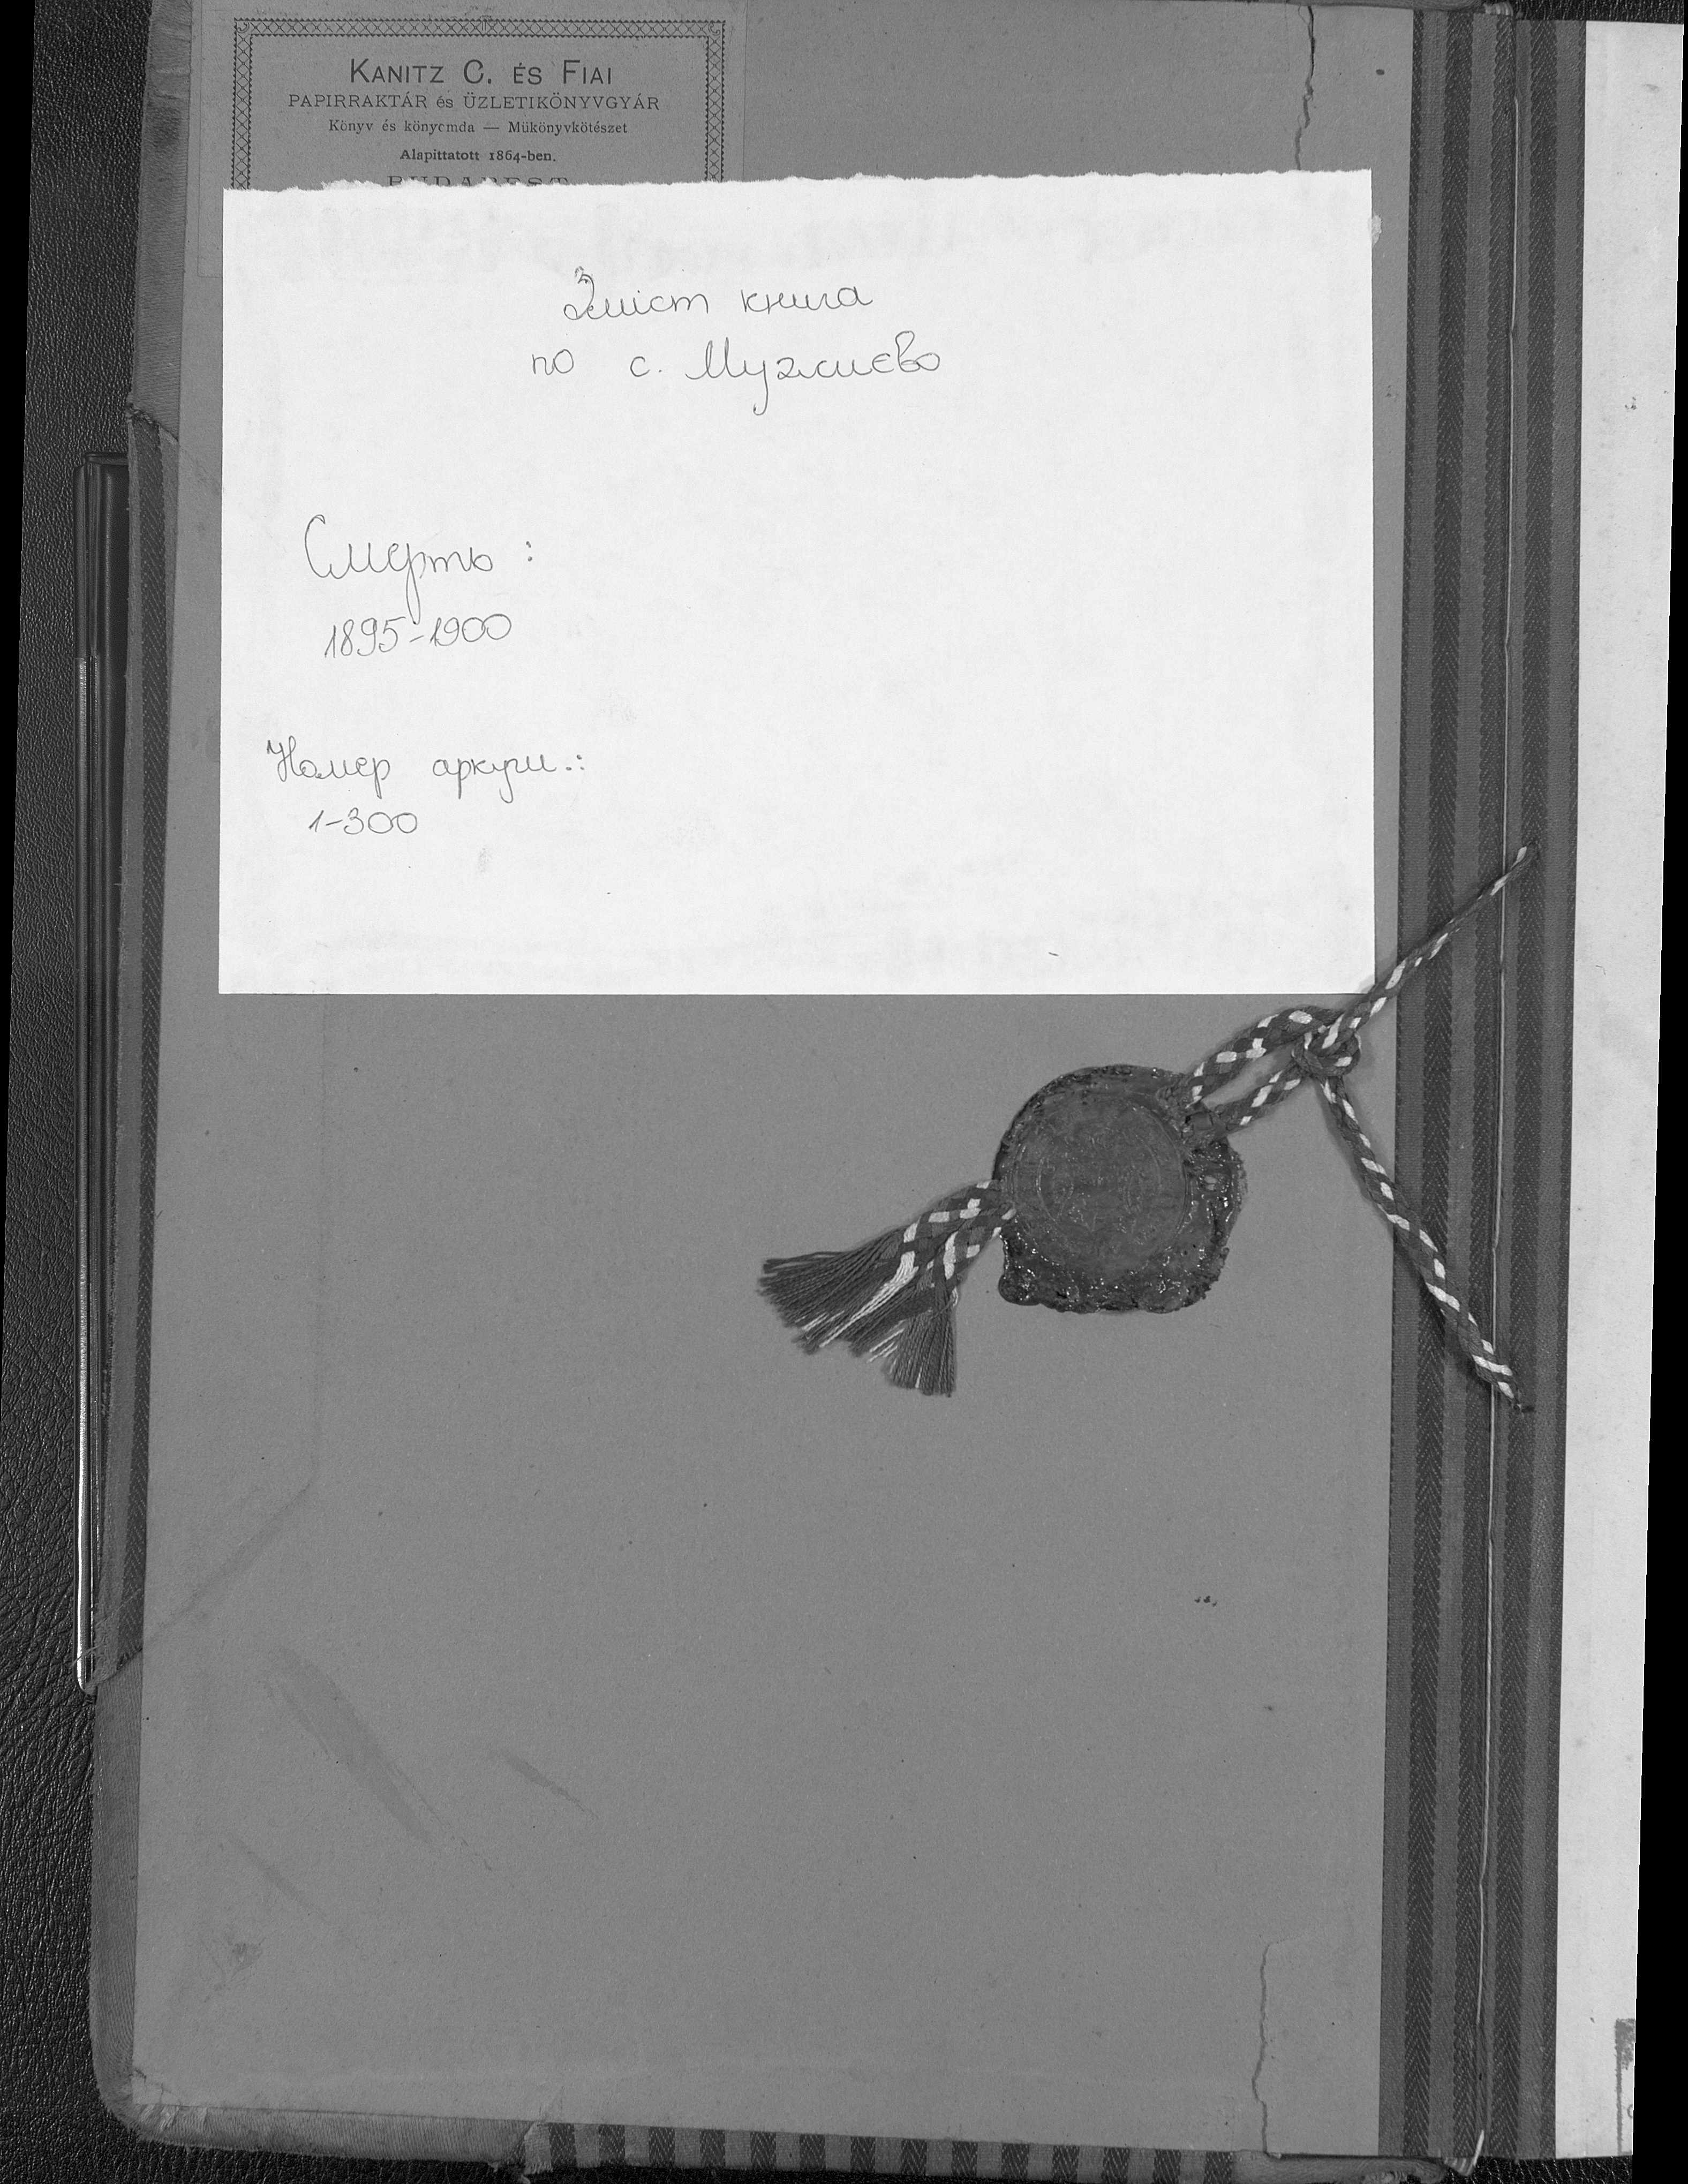 KANITZ C. ÉS FIAI
PAPIRRAKTÁR és ÜZLETIKÖNYVGYÁR
Könyv és könyomda — Mükönyvkötészet
Alapittatott 1864-ben.
BUDAPEST
Зміст книга
по с. Мужиєво
Смерть :
1895-1900
Номер аркуш.:
1-300